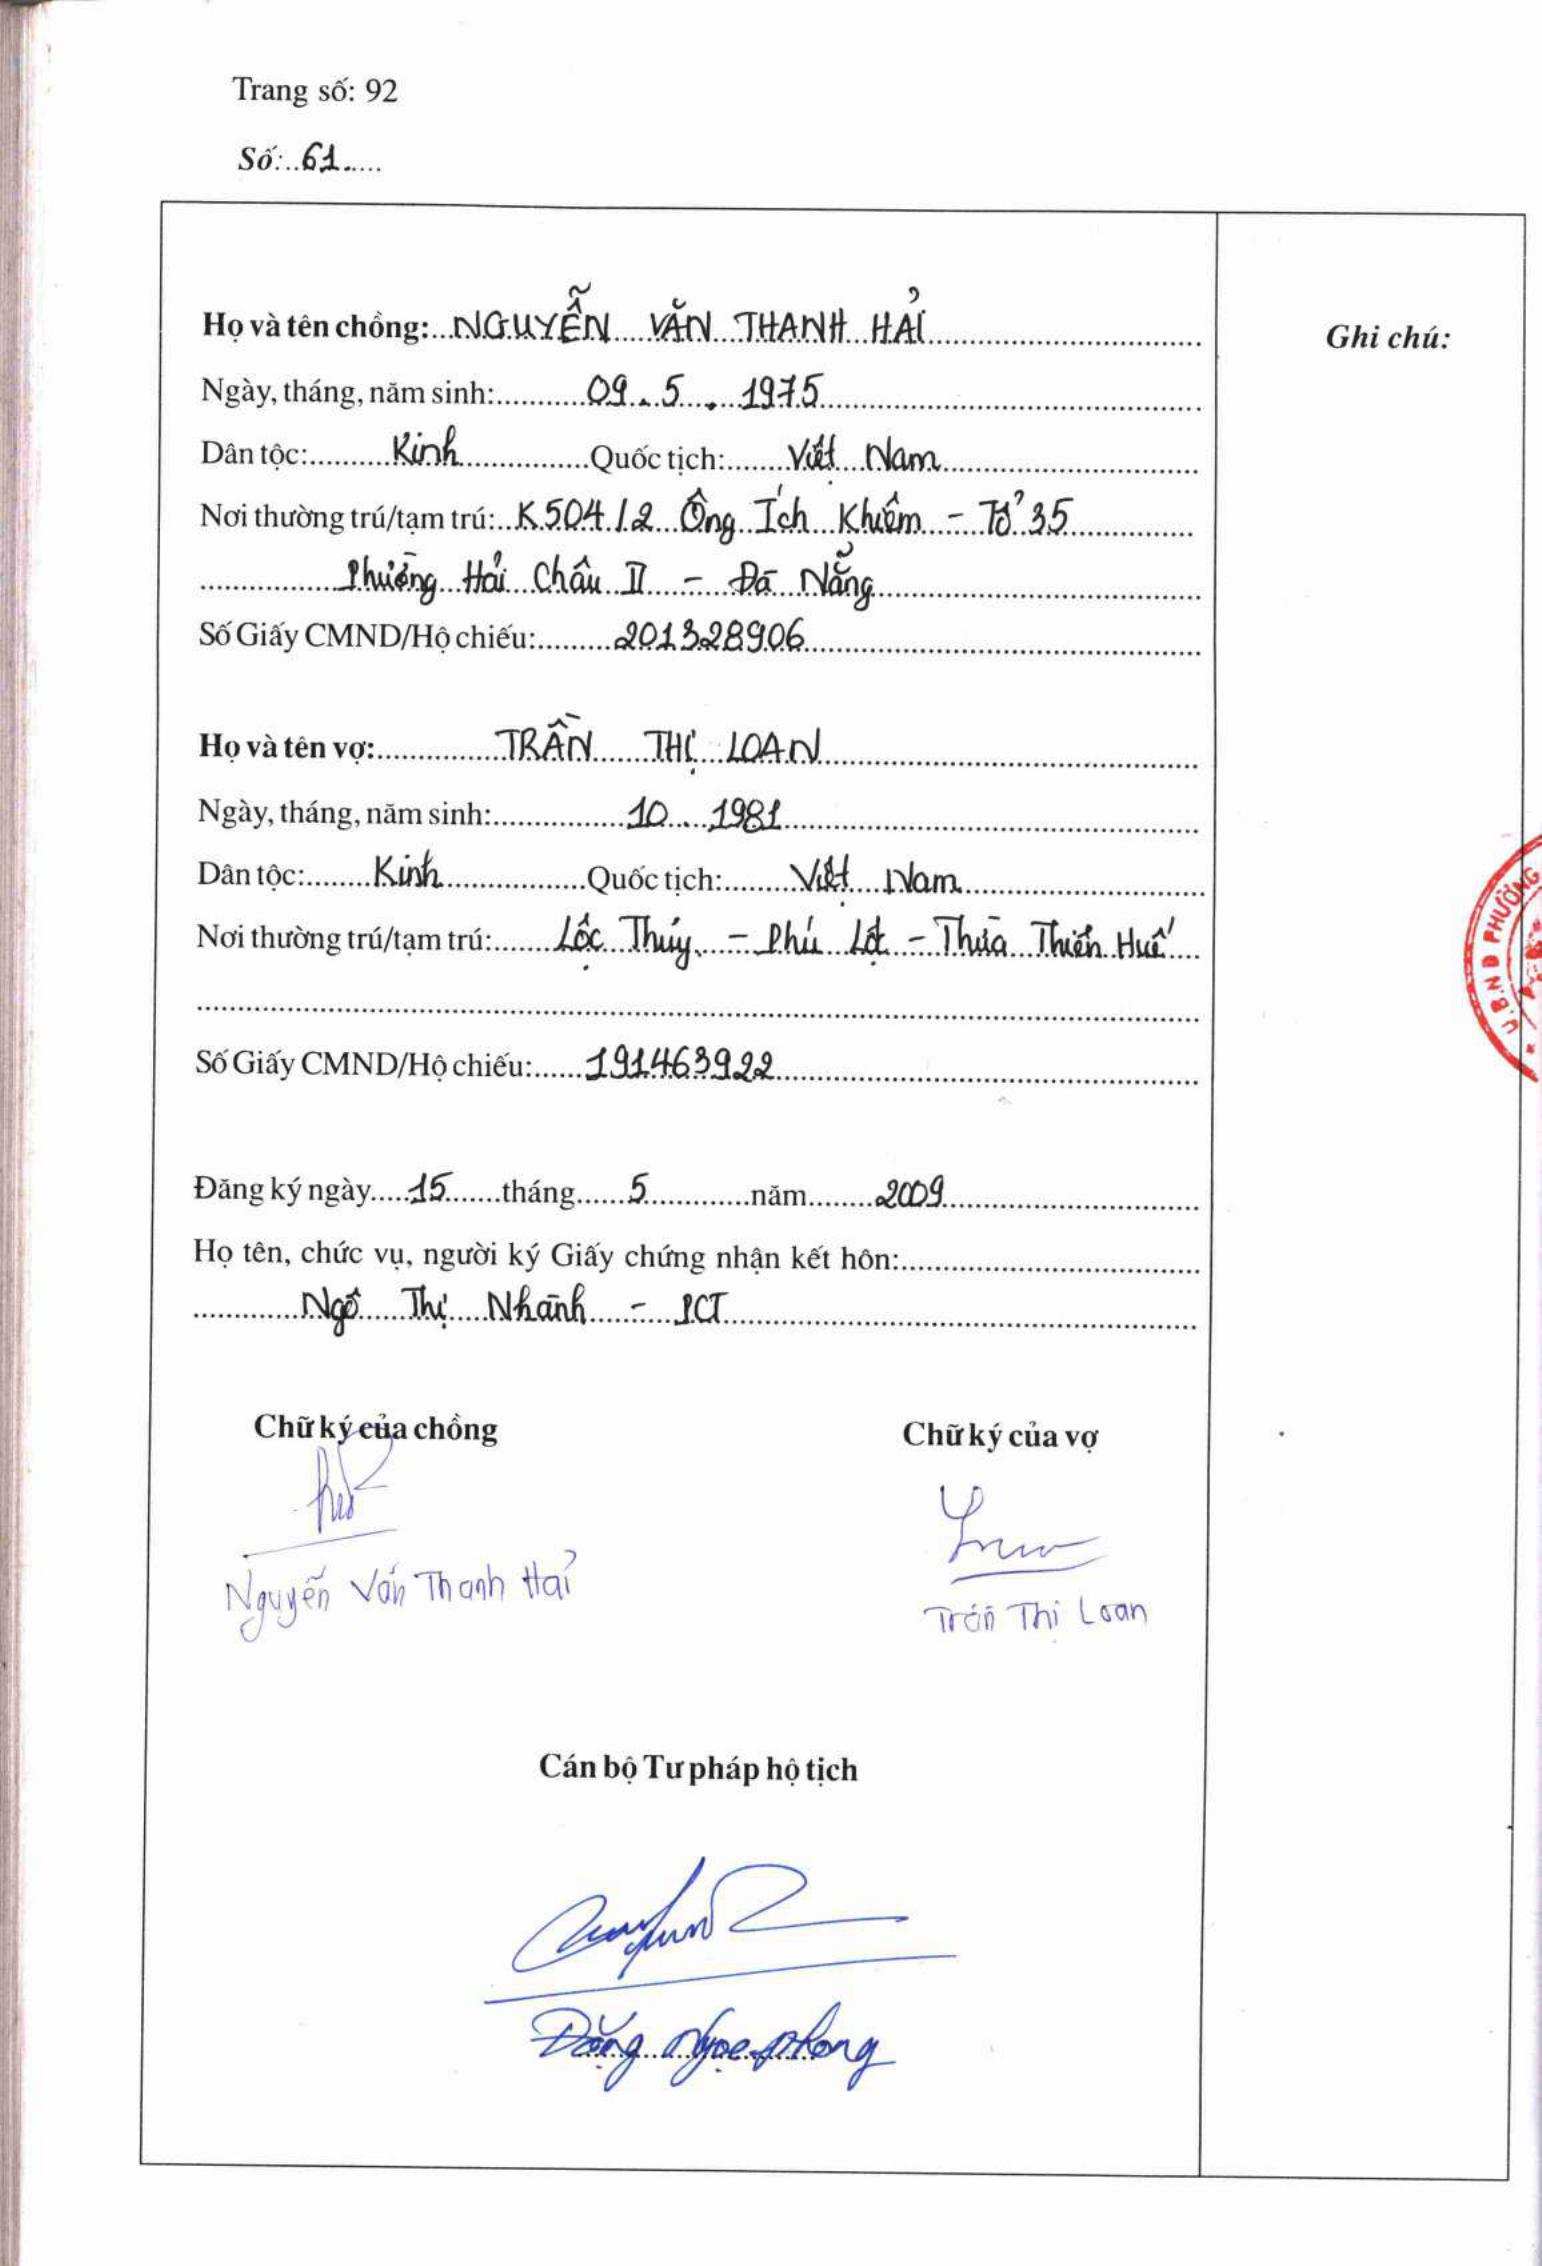 Trang số: 92
Số: 61
Họ và tên chồng: NGUYỄN VĂN THANH HẢI
Ghi chú:
Ngày, tháng, năm sinh: 09. 5. 1975
Dân tộc: Kinh Quốc tịch: Việt Nam
Nơi thường trú/tạm trú: K504/2 Ông Ích Khiêm - Tổ 35
Phường Hải Châu II - Đà Nẵng
Số Giấy CMND/Hộ chiếu: 201328906
Họ và tên vợ: TRẦN THỊ LOAN
Ngày, tháng, năm sinh: 10. 1981
Dân tộc: Kinh Quốc tịch: Việt Nam
Nơi thường trú/tạm trú: Lộc Thủy - Phú Lộc - Thừa Thiên Huế
Số Giấy CMND/Hộ chiếu: 191463922
U.B.N.D PHƯỜNG
Đăng ký ngày 15 tháng 5 năm 2009
Họ tên, chức vụ, người ký Giấy chứng nhận kết hôn:
Ngô Thị Nhành - PCT
Chữ ký của chồng Chữ ký của vợ
Nguyễn Văn Thanh Hải Trần Thị Loan
Cán bộ Tư pháp hộ tịch
Đặng Ngọc Phong